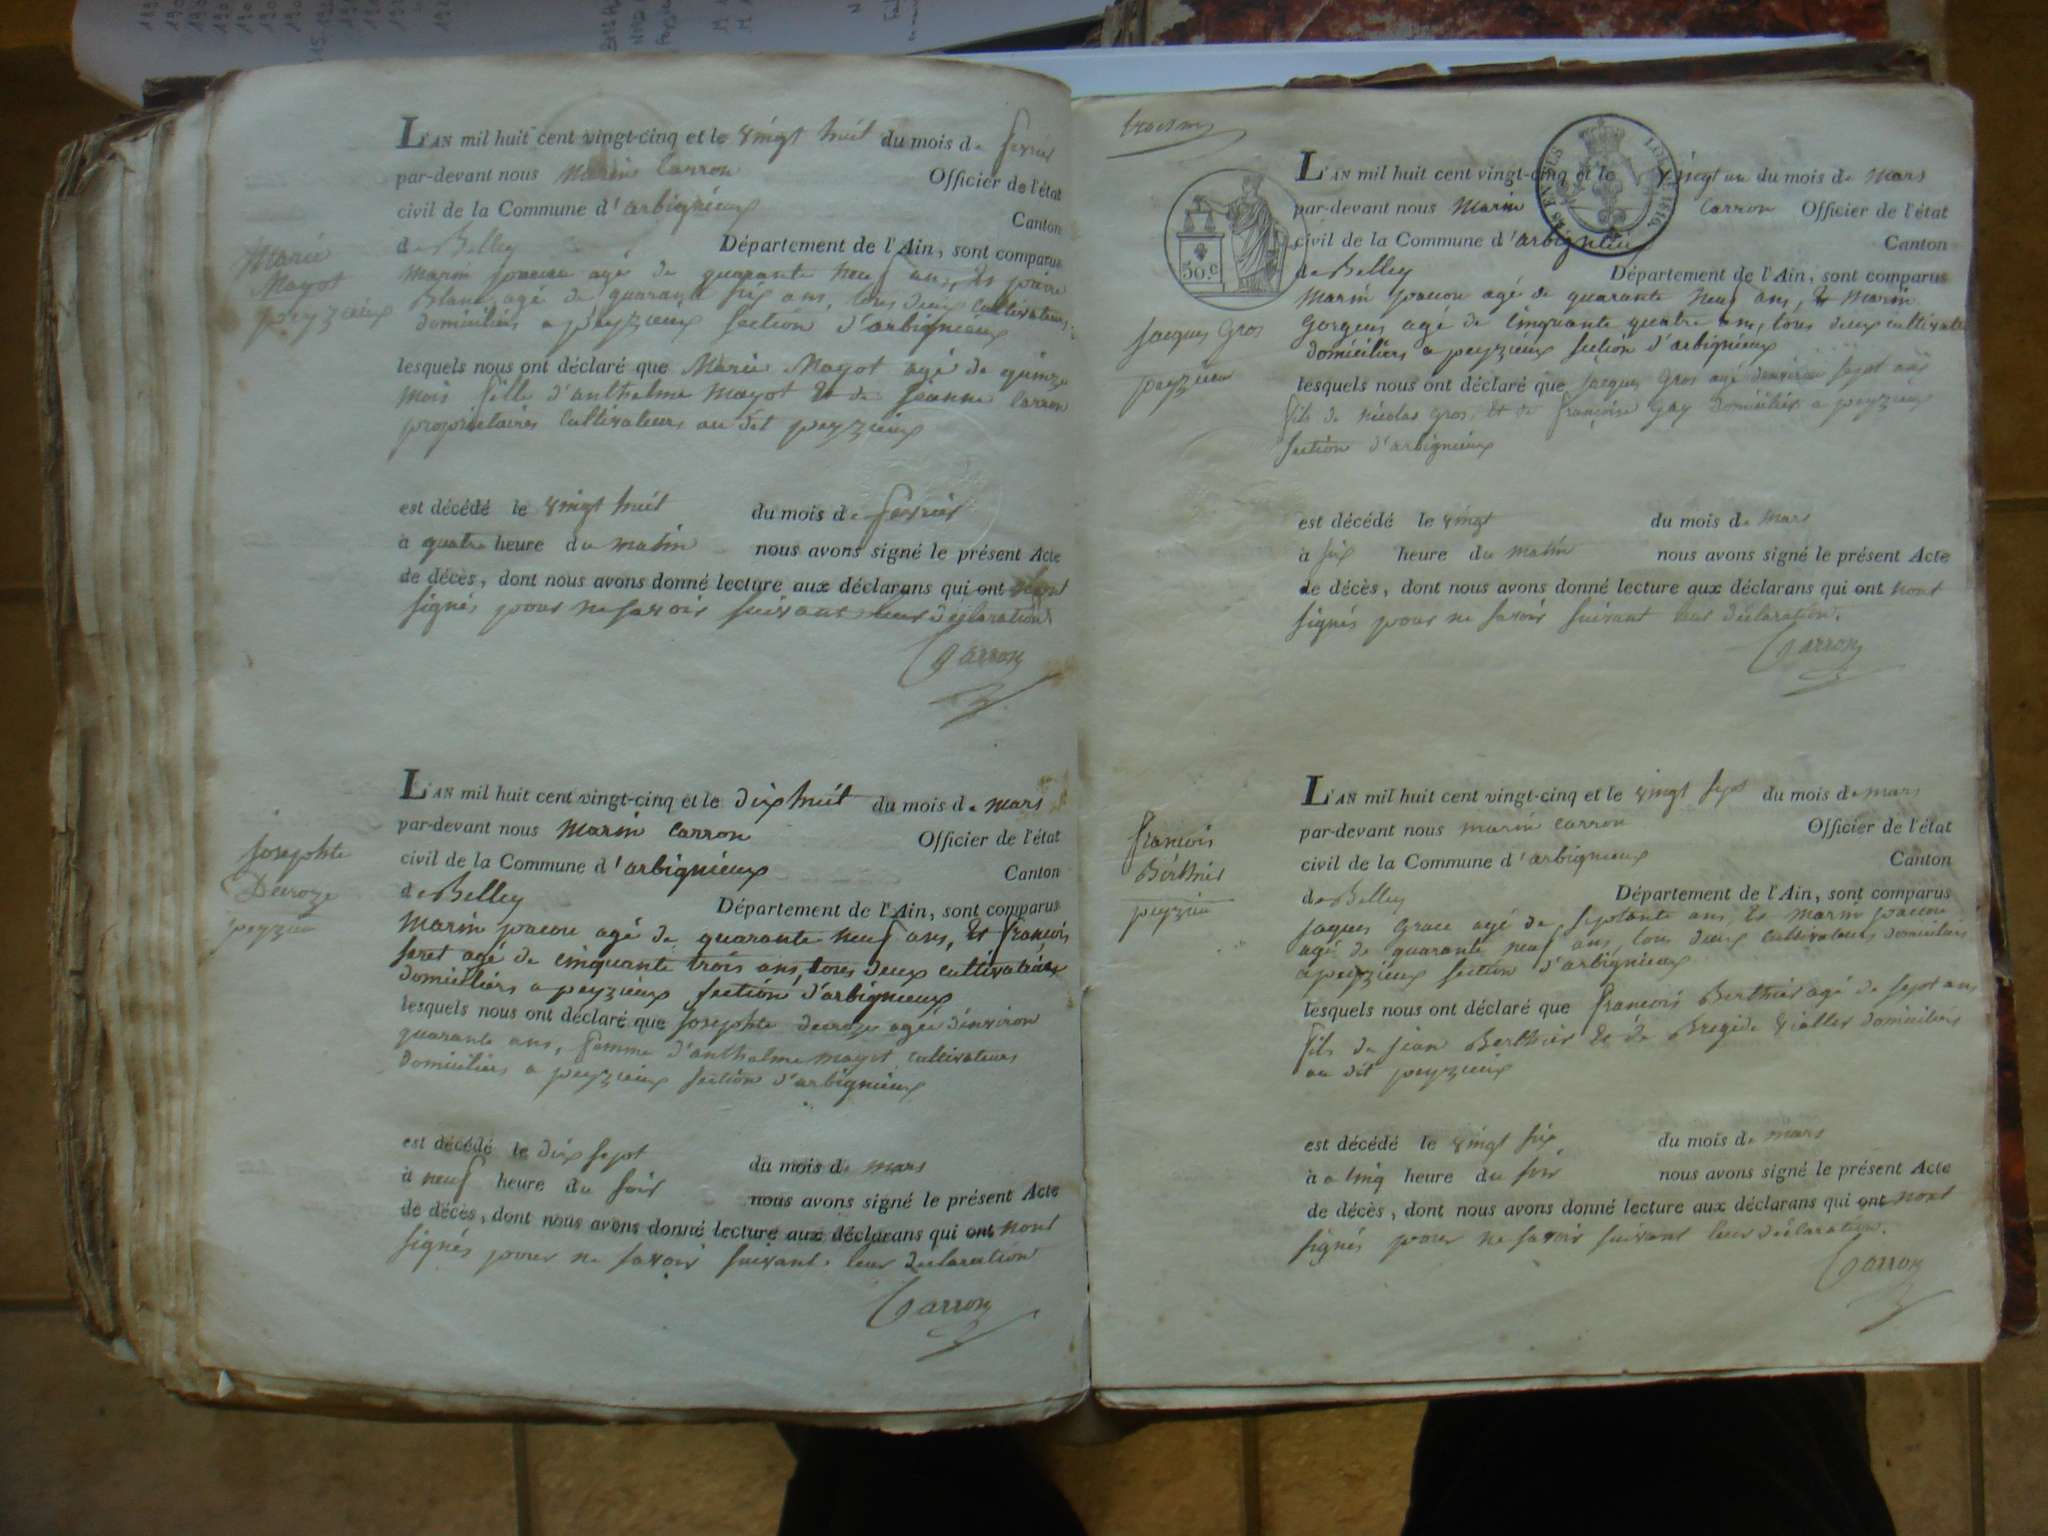 Marie
Mayot
peyzieux
L'AN mil huit cent vingt-cinq et le vingt huit du mois de fevrier
par-devant nous Marin Carron Officier de l'état
civil de la Commune d'arbignieux Canton
de Belley Département de l'Ain, sont comparus
marin pacou agé de quarante neuf ans, et
Blanc agé de quarante six ans, tous deux cultivateurs
domiciliés a peyzieux section d'arbignieux
lesquels nous ont déclaré que Marie Mayot agé de quinze
mois fille d'anthelme mayot et de jeanne Carron
propriétaires cultivateurs au dit peyzieux
est décédé le vingt huit du mois de fevrier
à quatre heure du matin nous avons signé le présent Acte
de décès, dont nous avons donné lecture aux déclarans qui ont nont
signés pour ne savoir suivant leur déclaration
Carron
josephte
Decroze
peyzieu
L'AN mil huit cent vingt-cinq et le dix huit du mois de mars
par-devant nous Marin Carron Officier de l'état
civil de la Commune d'arbignieux Canton
de Belley Département de l'Ain, sont comparus
Marin pacou agé de quarante neuf ans, et francois
agé de cinquante trois ans, tous deux cultivateurs
domiciliers a peyzieux section d'arbignieux
lesquels nous ont déclaré que josephte decroze agée d'environ
quarante ans, femme d'anthelme mayot, cultivateurs
domiciliers a peyzieux section d'arbignieux
est décédé le dix sept du mois de mars
à neuf heure du soir nous avons signé le présent Acte
de décès, dont nous avons donné lecture aux déclarans qui ont nont
signés pour ne savoir suivant leur declaration
Carron
troism
30.c
Jacques Gros
peyzieu
L'AN mil huit cent vingt-cinq et le vingt un du mois de mars
par-devant nous Marin Carron Officier de l'état
civil de la Commune d'arbignieux Canton
de Belley Département de l'Ain, sont comparus
Marin pacou agé de quarante neuf ans, et Marin
Gorgeus agé de cinquante quatre ans, tous deux cultivate
domiciliers a peyzieux section d'arbignieux
lesquels nous ont déclaré que jacques Gros agé denviron sept ans
fils de nicolas Gros, et de françoise Gay Domiciliés a peyzieux
section d'arbignieux
est décédé le vingt du mois de mars
à six heure du matin nous avons signé le présent Acte
de décès, dont nous avons donné lecture aux déclarans qui ont nont
signés pour ne savoir suivant leur déclaration.
Carron
francois
Berthier
peyzieu
L'AN mil huit cent vingt-cinq et le vingt sept du mois de mars
par-devant nous marin carron Officier de l'état
civil de la Commune d'arbignieux Canton
de Belley Département de l'Ain, sont comparus
jaques Grace agé de septante ans, et marin pacou
agé de quarante neuf ans, tous deux cultivateurs domiciliés
a peyzieux section d'arbignieux
lesquels nous ont déclaré que francois Berthier agé de sept ans
fils de jean Berthier et de Bregide viallet domiciliés
au dit peyzieux
est décédé le vingt six du mois de mars
à a cinq heure du soir nous avons signé le présent Acte
de décès, dont nous avons donné lecture aux déclarans qui ont nont
signés pour ne savoir suivant leur déclaration.
Carron